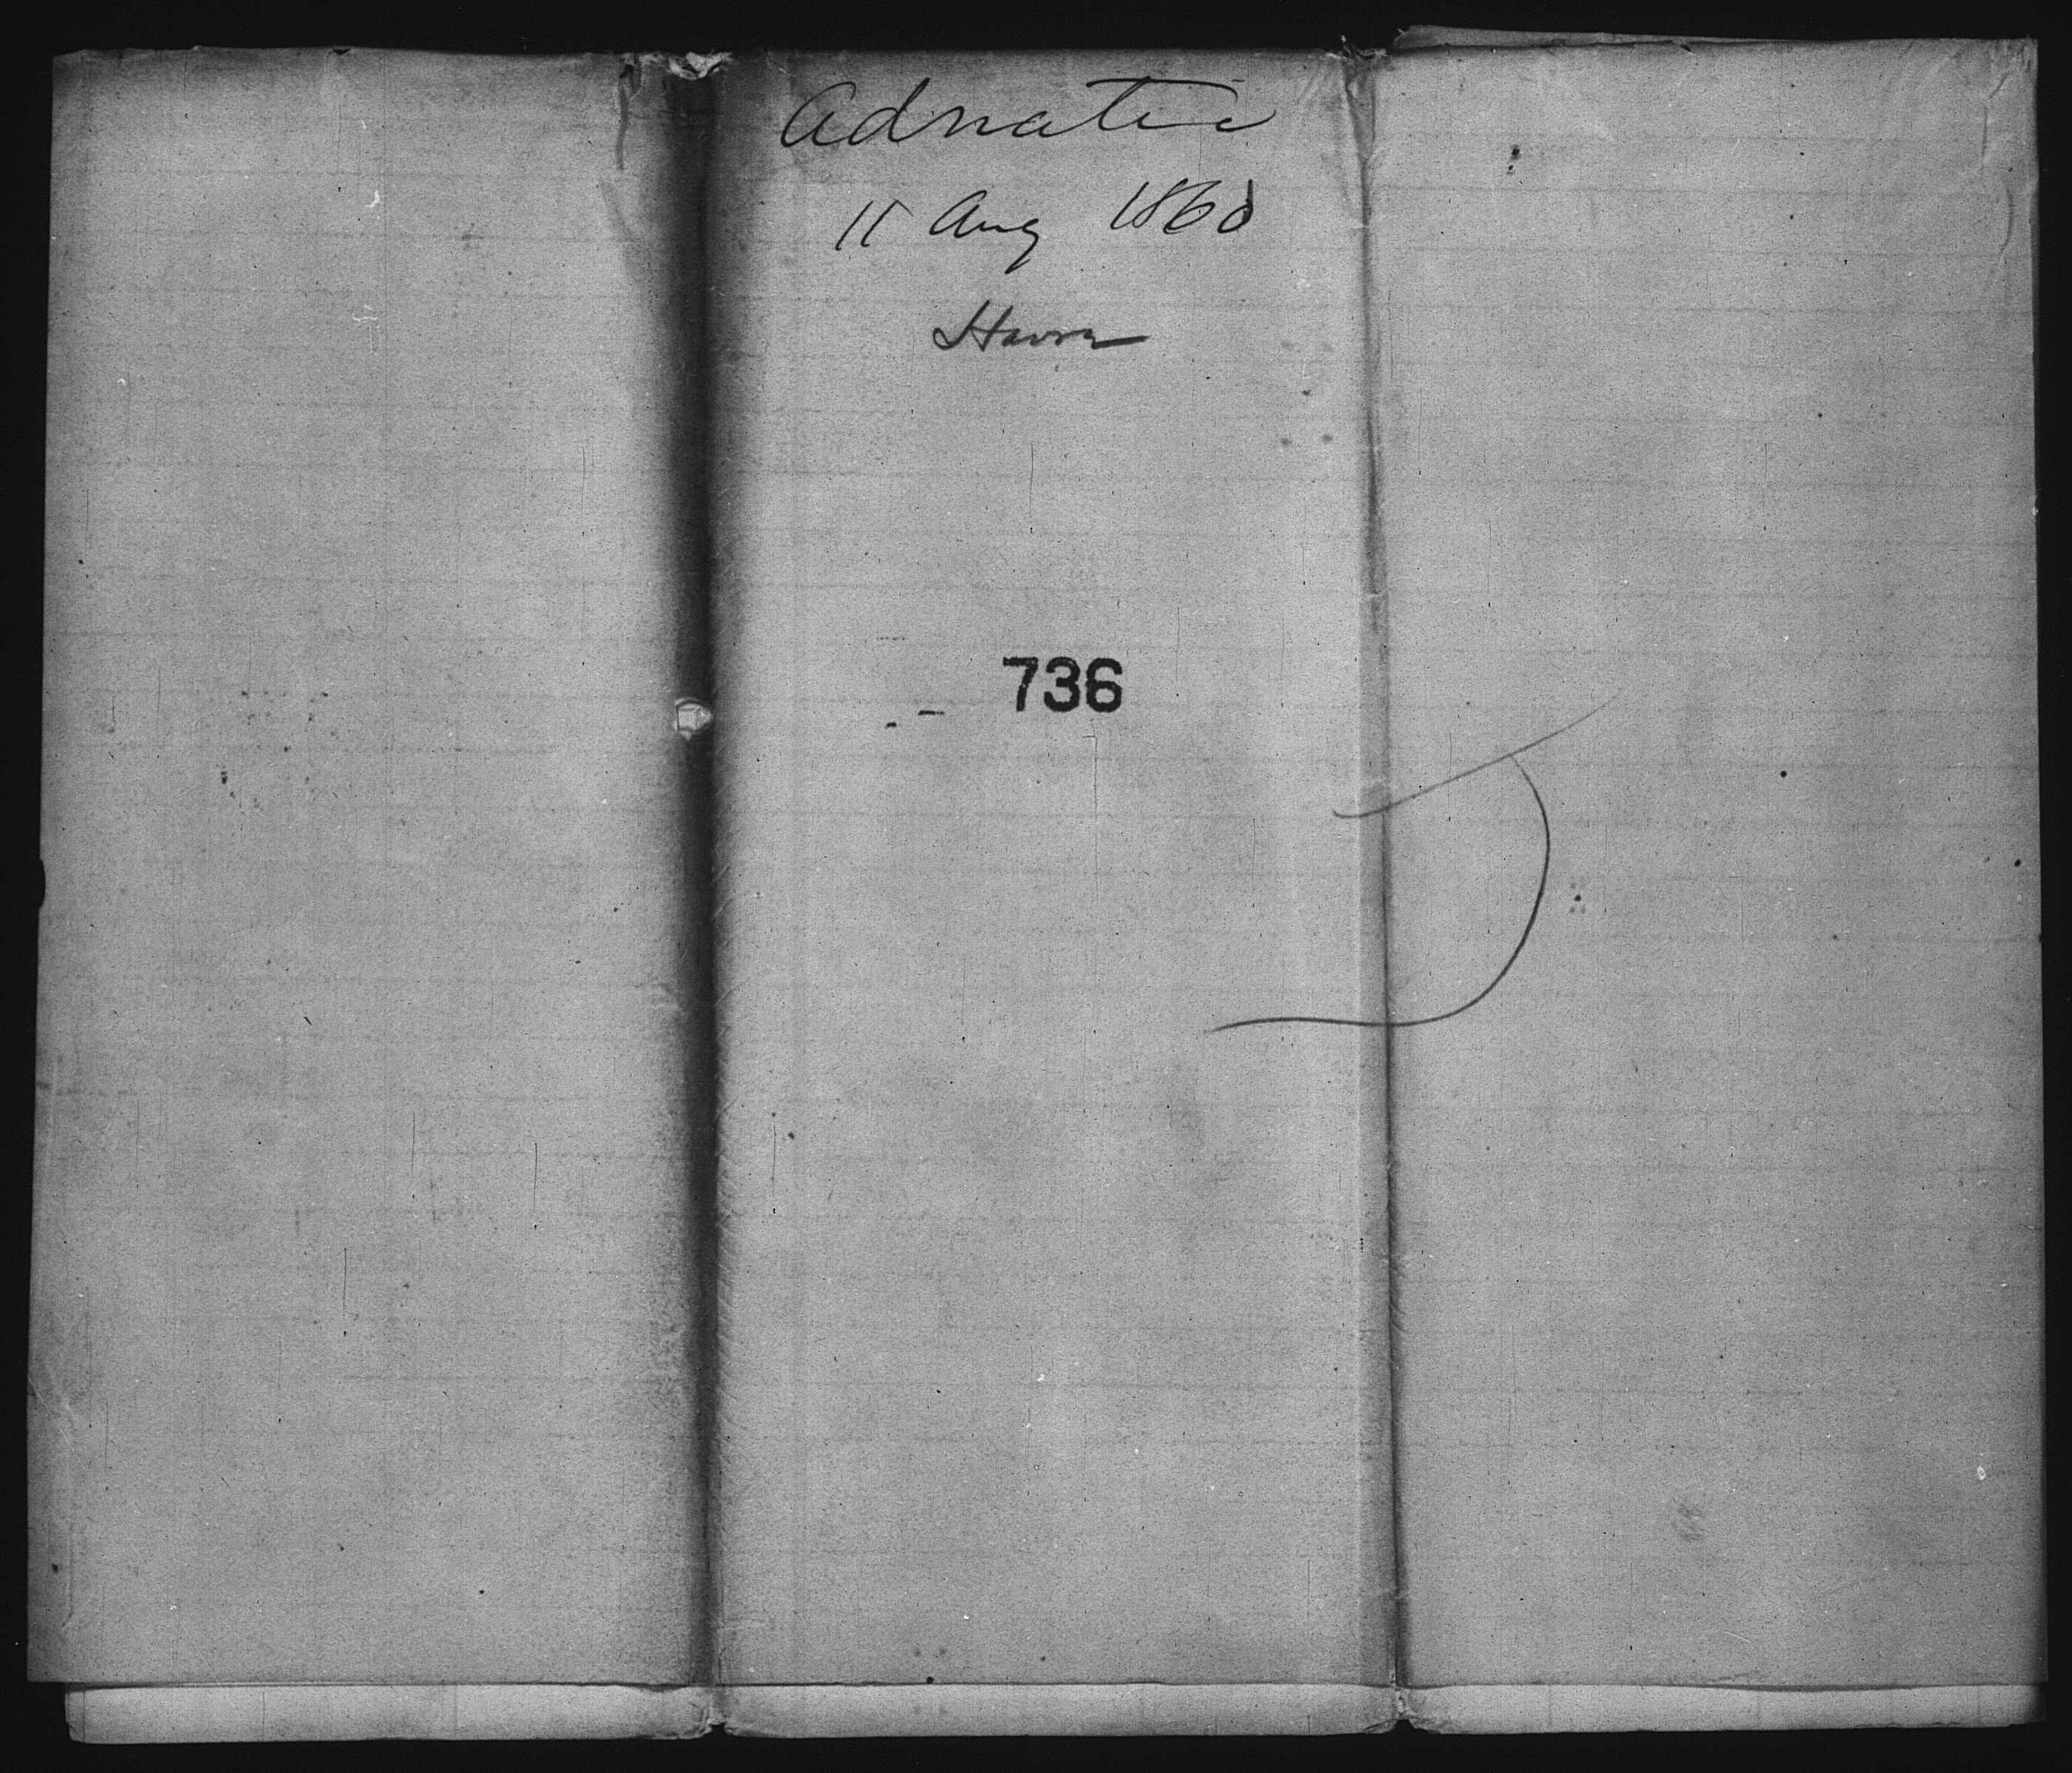 Adriatic
11 Aug 1860
Havre
736